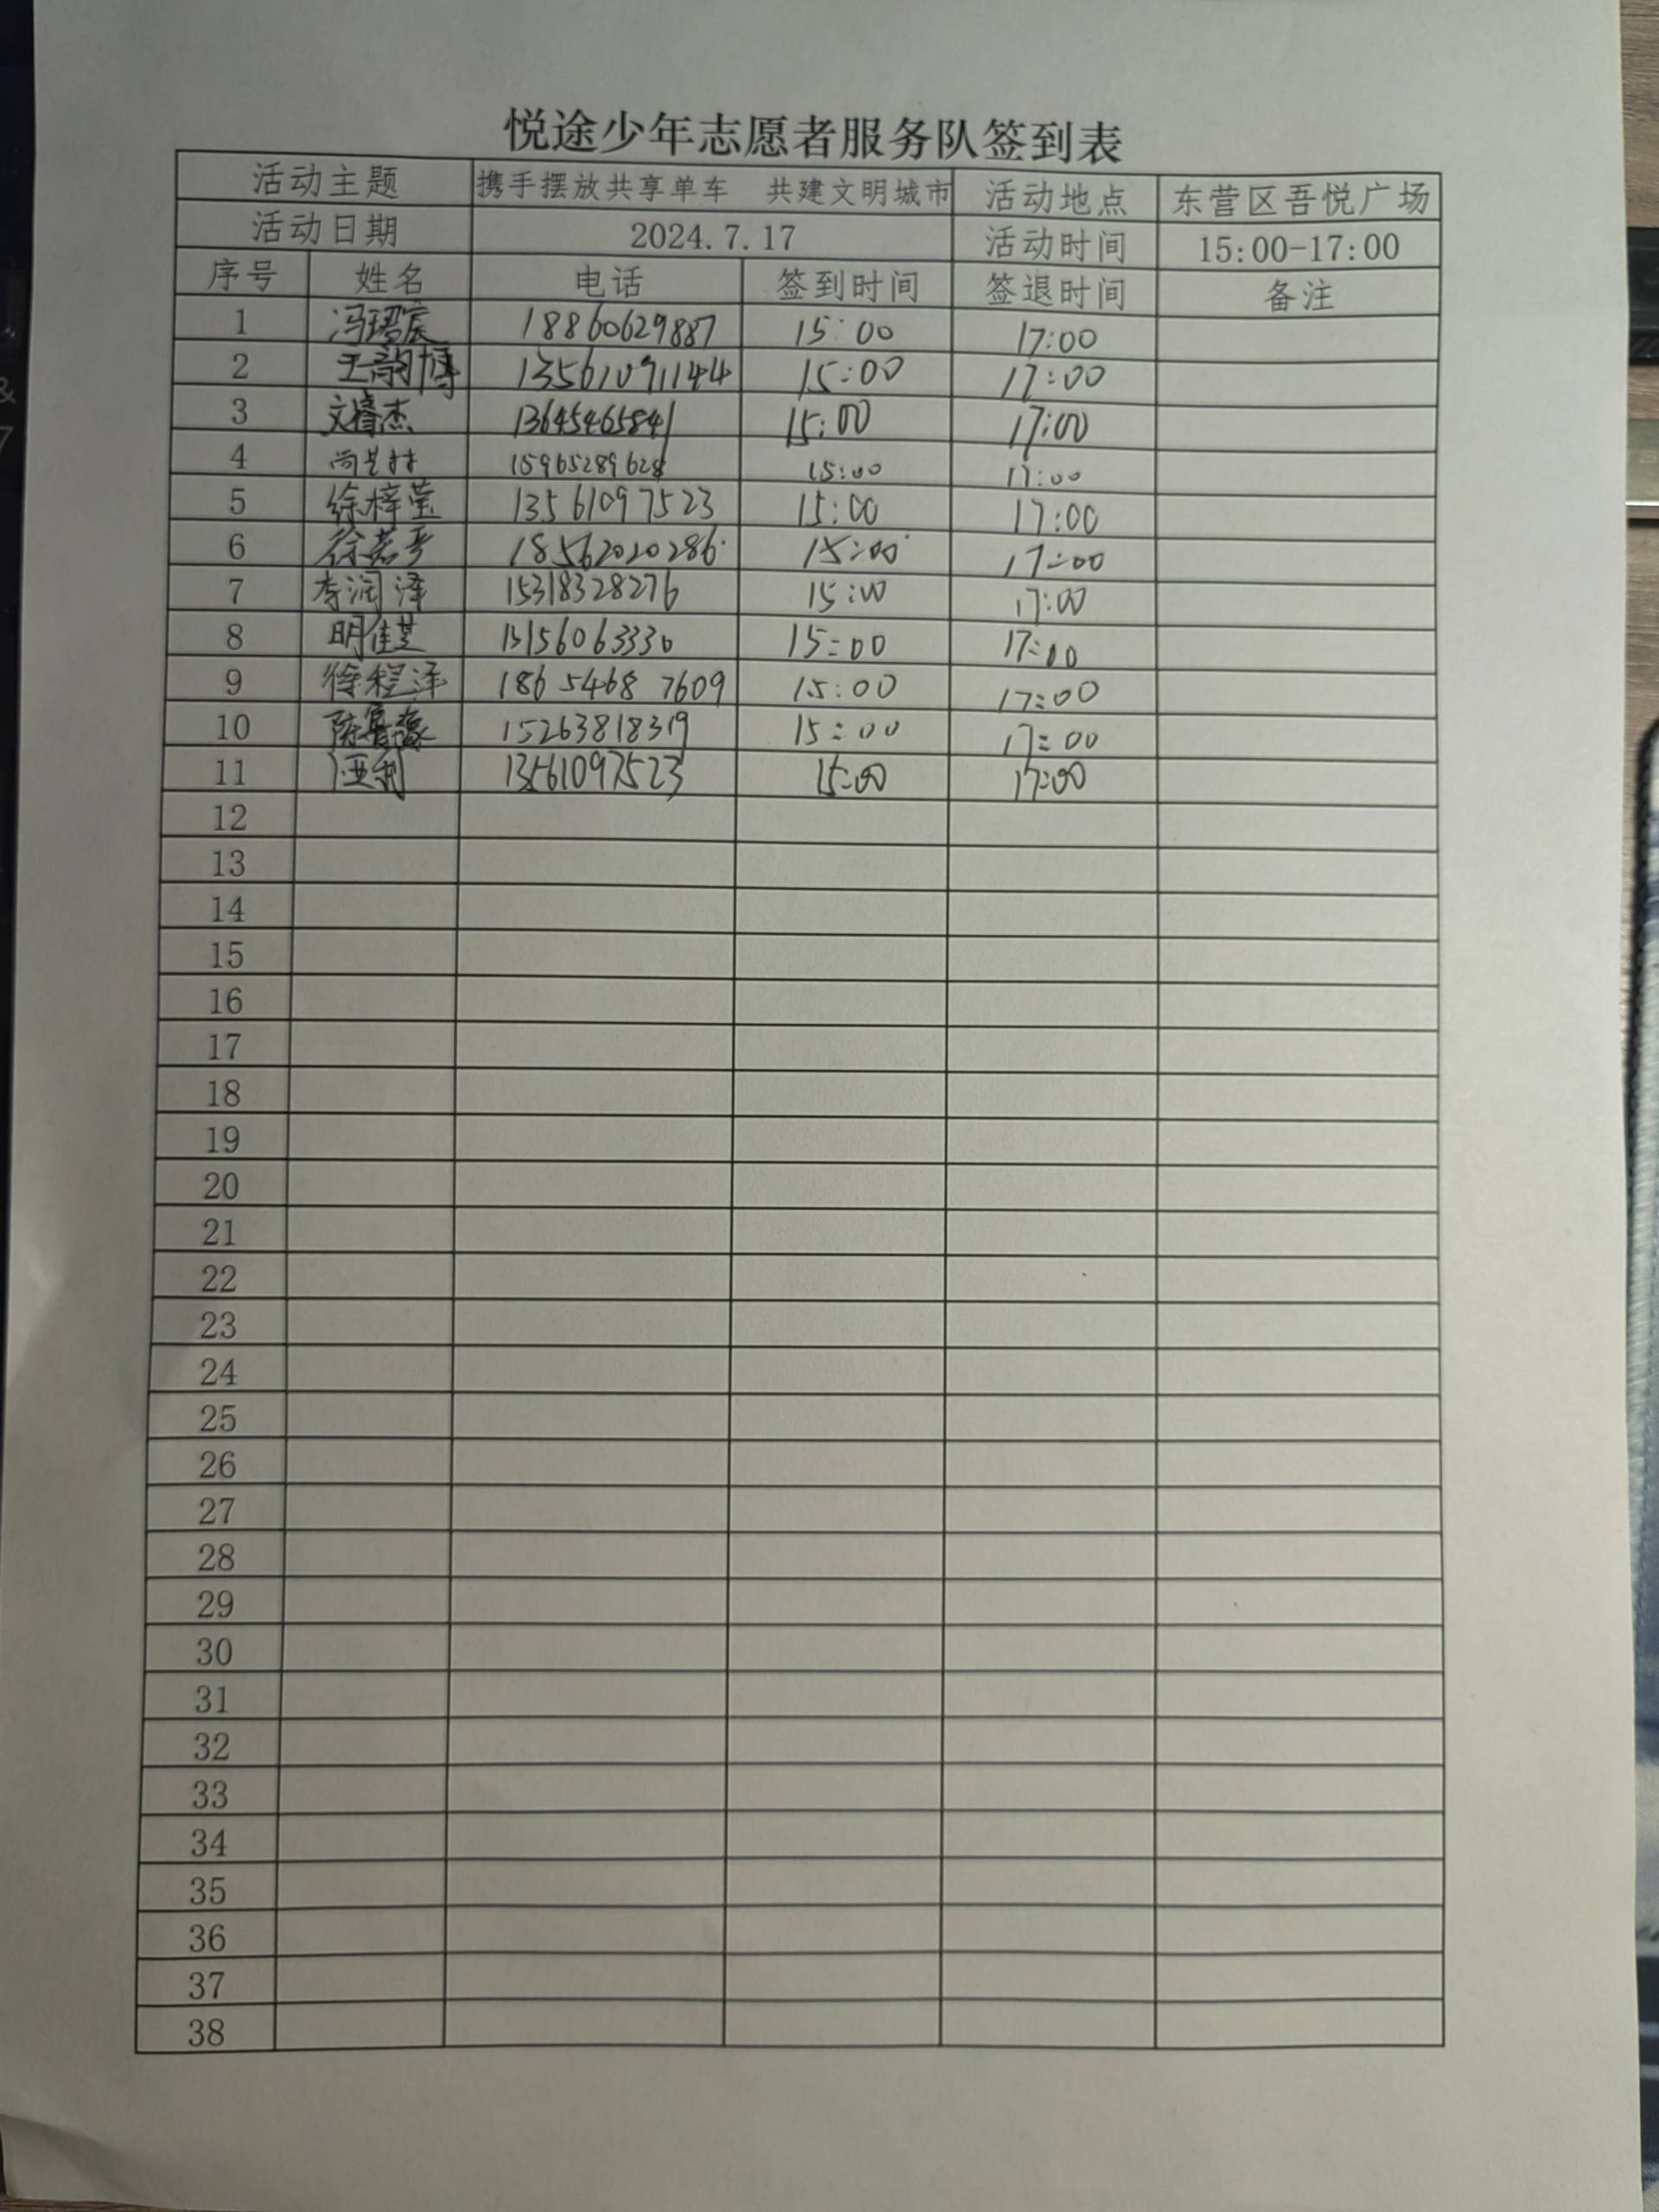 悦途少年志愿者服务队签到表
活动主题 携手摆放共享单车 共建文明城市 活动地点 东营区吾悦广场
活动日期 2024.7.17 活动时间 15:00-17:00
序号 姓名 电话 签到时间 签退时间 备注
1 冯珺宸 18860629887 15:00 17:00
2 王韵博 13561091144 15:00 17:00
3 文睿杰 13645465841 15:00 17:00
4 15965289628 15:00 17:00
5 徐梓莹 13561097523 15:00 17:00
6 徐若平 18562020286 15:00 17:00
7 李润泽 15318328276 15:00 17:00
8 明佳芝 13156063330 15:00 17:00
9 徐程泽 18654687609 15:00 17:00
10 15263818319 15:00 17:00
11 13561097523 15:00 17:00
12
13
14
15
16
17
18
19
20
21
22
23
24
25
26
27
28
29
30
31
32
33
34
35
36
37
38